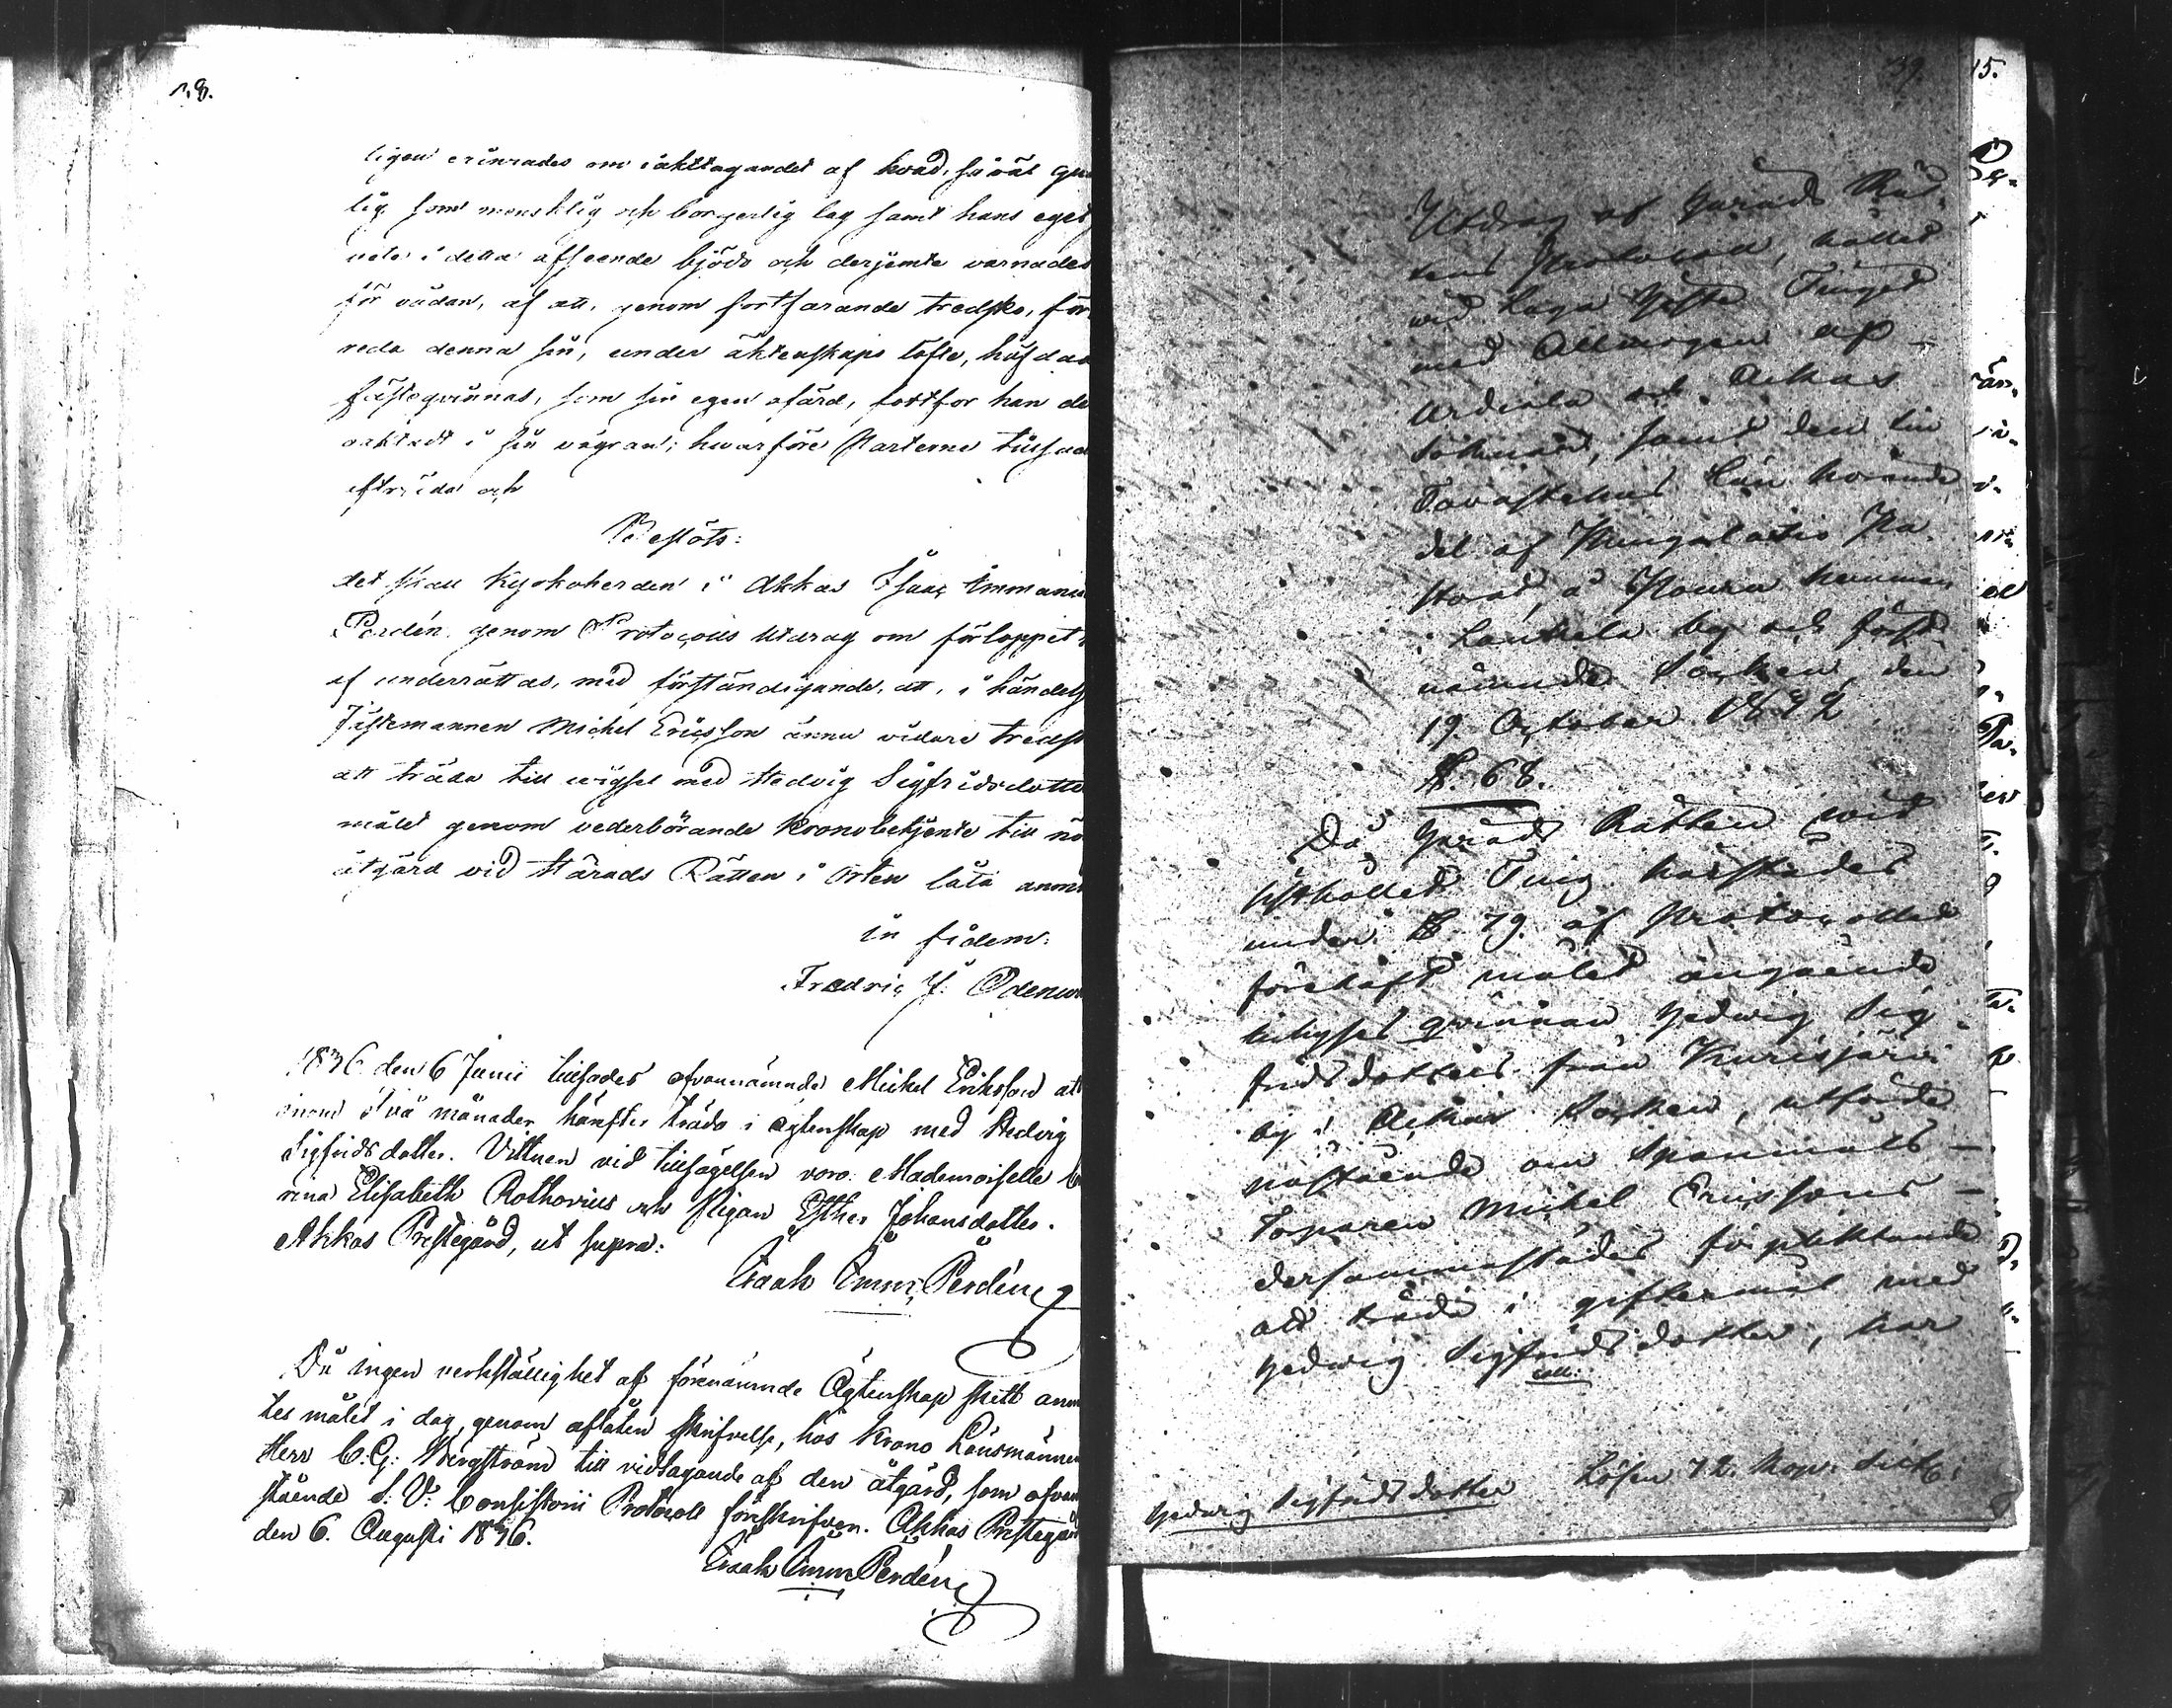 38.
ligen erinrades om iakttagandet af hvad, så väl gu
lig som mensklig och borgerlig lag samt hans eget
i detta afseende bjöde och derjemte varnades
för vådan, af att, genom fortfarande tredsko, för
reda denna sin, under äktenskaps löfte, häfdad
fästeqvinnas, som sin egen ofärd, fortfor han de
oaktadt i sin vägran; hvarföre Parterne tillsad
afträda och
Beslöts:
det skall Kyrkoherden i Akkas Isaac Immanu
Perdén genom Protocolls utdrag om förloppet
af underrättas, med förständigande, att, i händels
Fästemannen Michel Ericsson ännu vidare tredsk
att träda till wigsel med Hedvig Sigfridsdotte
målet genom vederbörande Kronobetjente till nö
åtgärd vid Härads Rätten i Orten låta anm
in fidem:
Fredric J: Odenwa
1836 den 6 Junii tillsades ofvannämnde Michel Eriksson att
inom två månader härefter träda i ägtenskap med Hedvig
Sigfridsdotter. Vittnen vid tillsägelsen voro: Mademoiselle C
rina Elisabeth Rothovius och Pigan Esther Johansdotter.
Akkas Prestegård, ut supra:
Isaak Imm: Perdén
Då ingen verkställighet af förenämnde Ägtenskap skett anm
tes målet i dag, genom aflåten skrifvelse, hos Krono Länsmannen
Herr C: G: Bergström till vidtagande af den åtgärd, som ofvan
stående S: V: Consistorii Protocoll föreskrifver. Akkas Prestegård
den 6. Augusti 1836.
Isaak Imm: Perdén
39.
Utdrag af Härads Rät
tens Protocoll, hållet
wid Laga Höste Tinget
med Allmogen af
Urdiala och Ackas
Soknar, samt den till
Tavastehus Län hörande
del af Pungalaitio
å Pouru hemman
Laukela by och först
nämnde Socken den
19 October 1842
§. 68.
Då Härads Rätten wid
sisthållet Ting härstädes
under §. 79. af Protocollet
förehaft målet angående
inhyses qvinnan Hedwig Sig
fridsdotters från Kurisjärvi
by i Ackas Socken, utförde
påstående om Spanmåls
Torparen Michel Ericssons
dersammastädes förpliktande
att träda i giftermål med
Hedwig Sigfridsdotter, har
coll:
Hedwig Sigfridsdotter Lösen 72. Kop. Silf:
15.